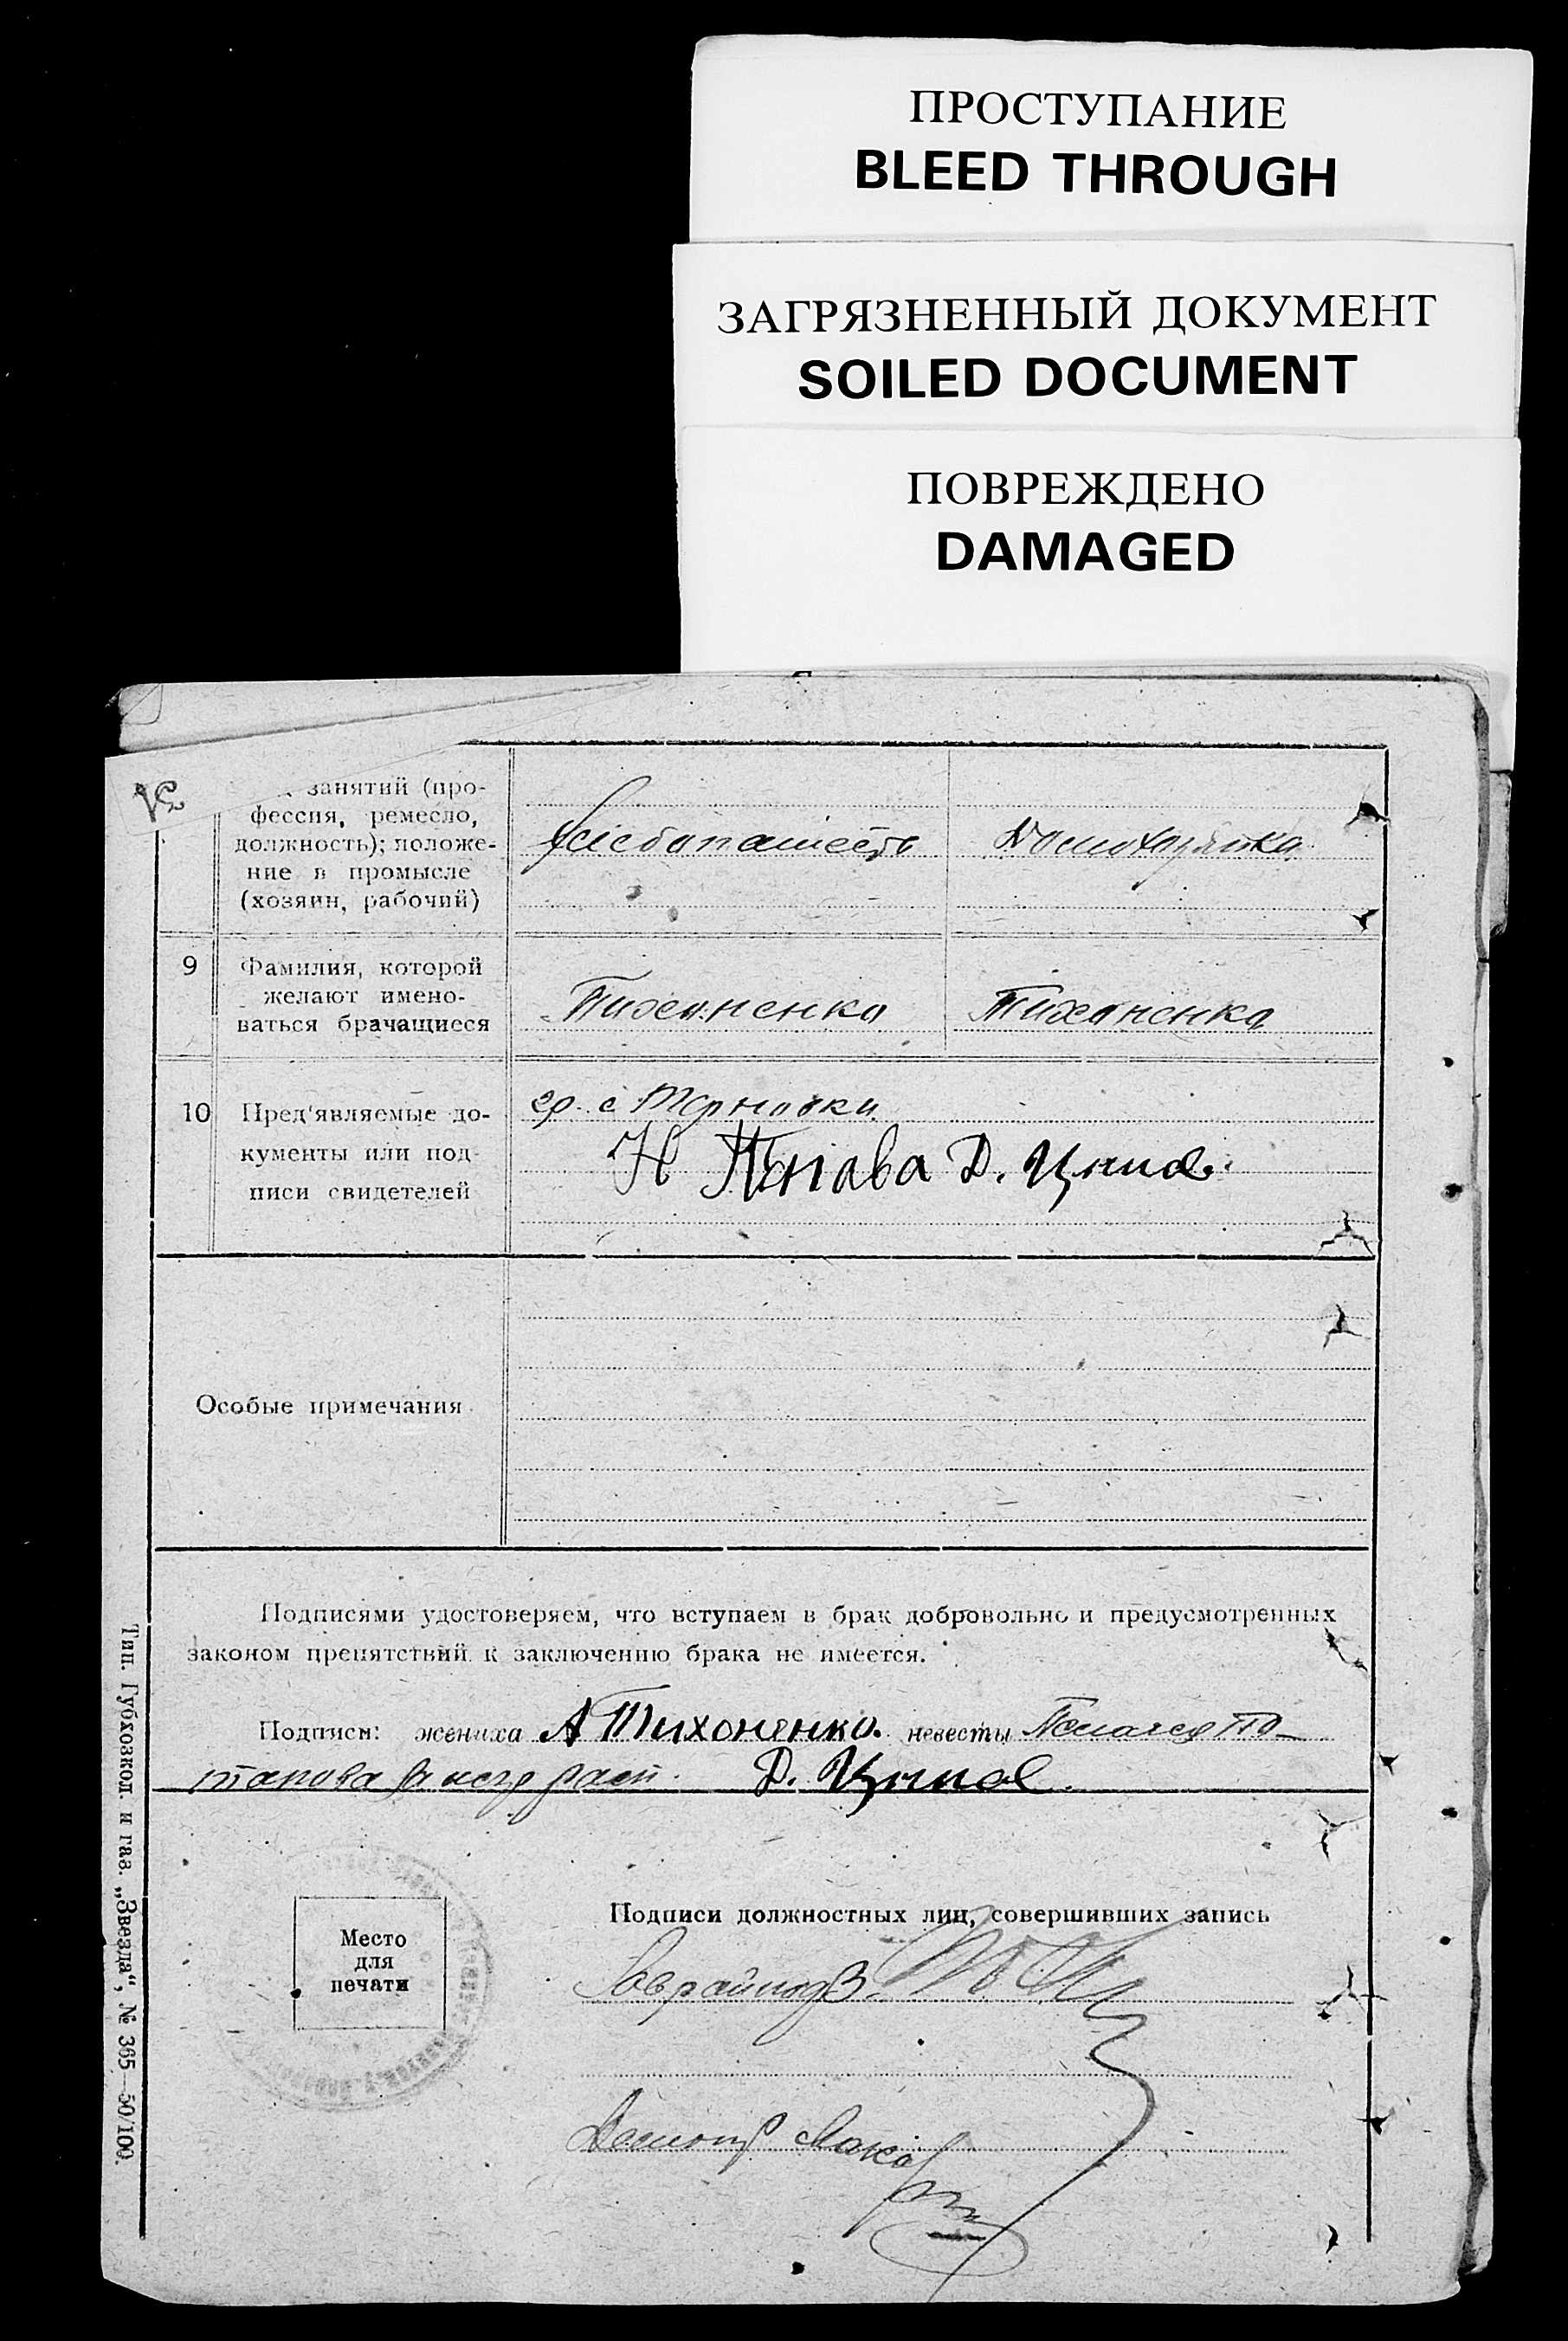 ПРОСТУПАНИЕ
BLEED THROUGH
ЗАГРЯЗНЕННЫЙ ДОКУМЕНТ
SOILED DOCUMENT
ПОВРЕЖДЕНО
DAMAGED
занятий (про-
фессия, ремесло,
должность); положе-
ние в промысле
(хозяин, рабочий)
Хлебопашесть Домохозяйка
9 Фамилия, которой
желают имено-
ваться брачащиеся
Тихоненко Тихоненко
10 Пред'являемые до-
кументы или под-
писи свидетелей
гр. с Терновки
Н Д.
Особые примечания
Подписями удостоверяем, что вступаем в брак добровольно и предусмотренных
законом препятствий к заключению брака не имеется.
Подписи: жениха А Тихоненко. невесты Пелагея По-
тапова за негр расп. Д.
Место
для
печати
Подписи должностных лиц, совершивших запись
Тип. Губхозкол. и газ. „Звезда“, № 365—50/100.